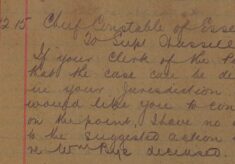 12.15 Chief Constable of Esse
To Supt Hassell
If your Clerk of the P
that the case can be de
in your Jurisdiction
would like you to con
on the point, I have no o
to the suggested action
re Wm Pye deceased.